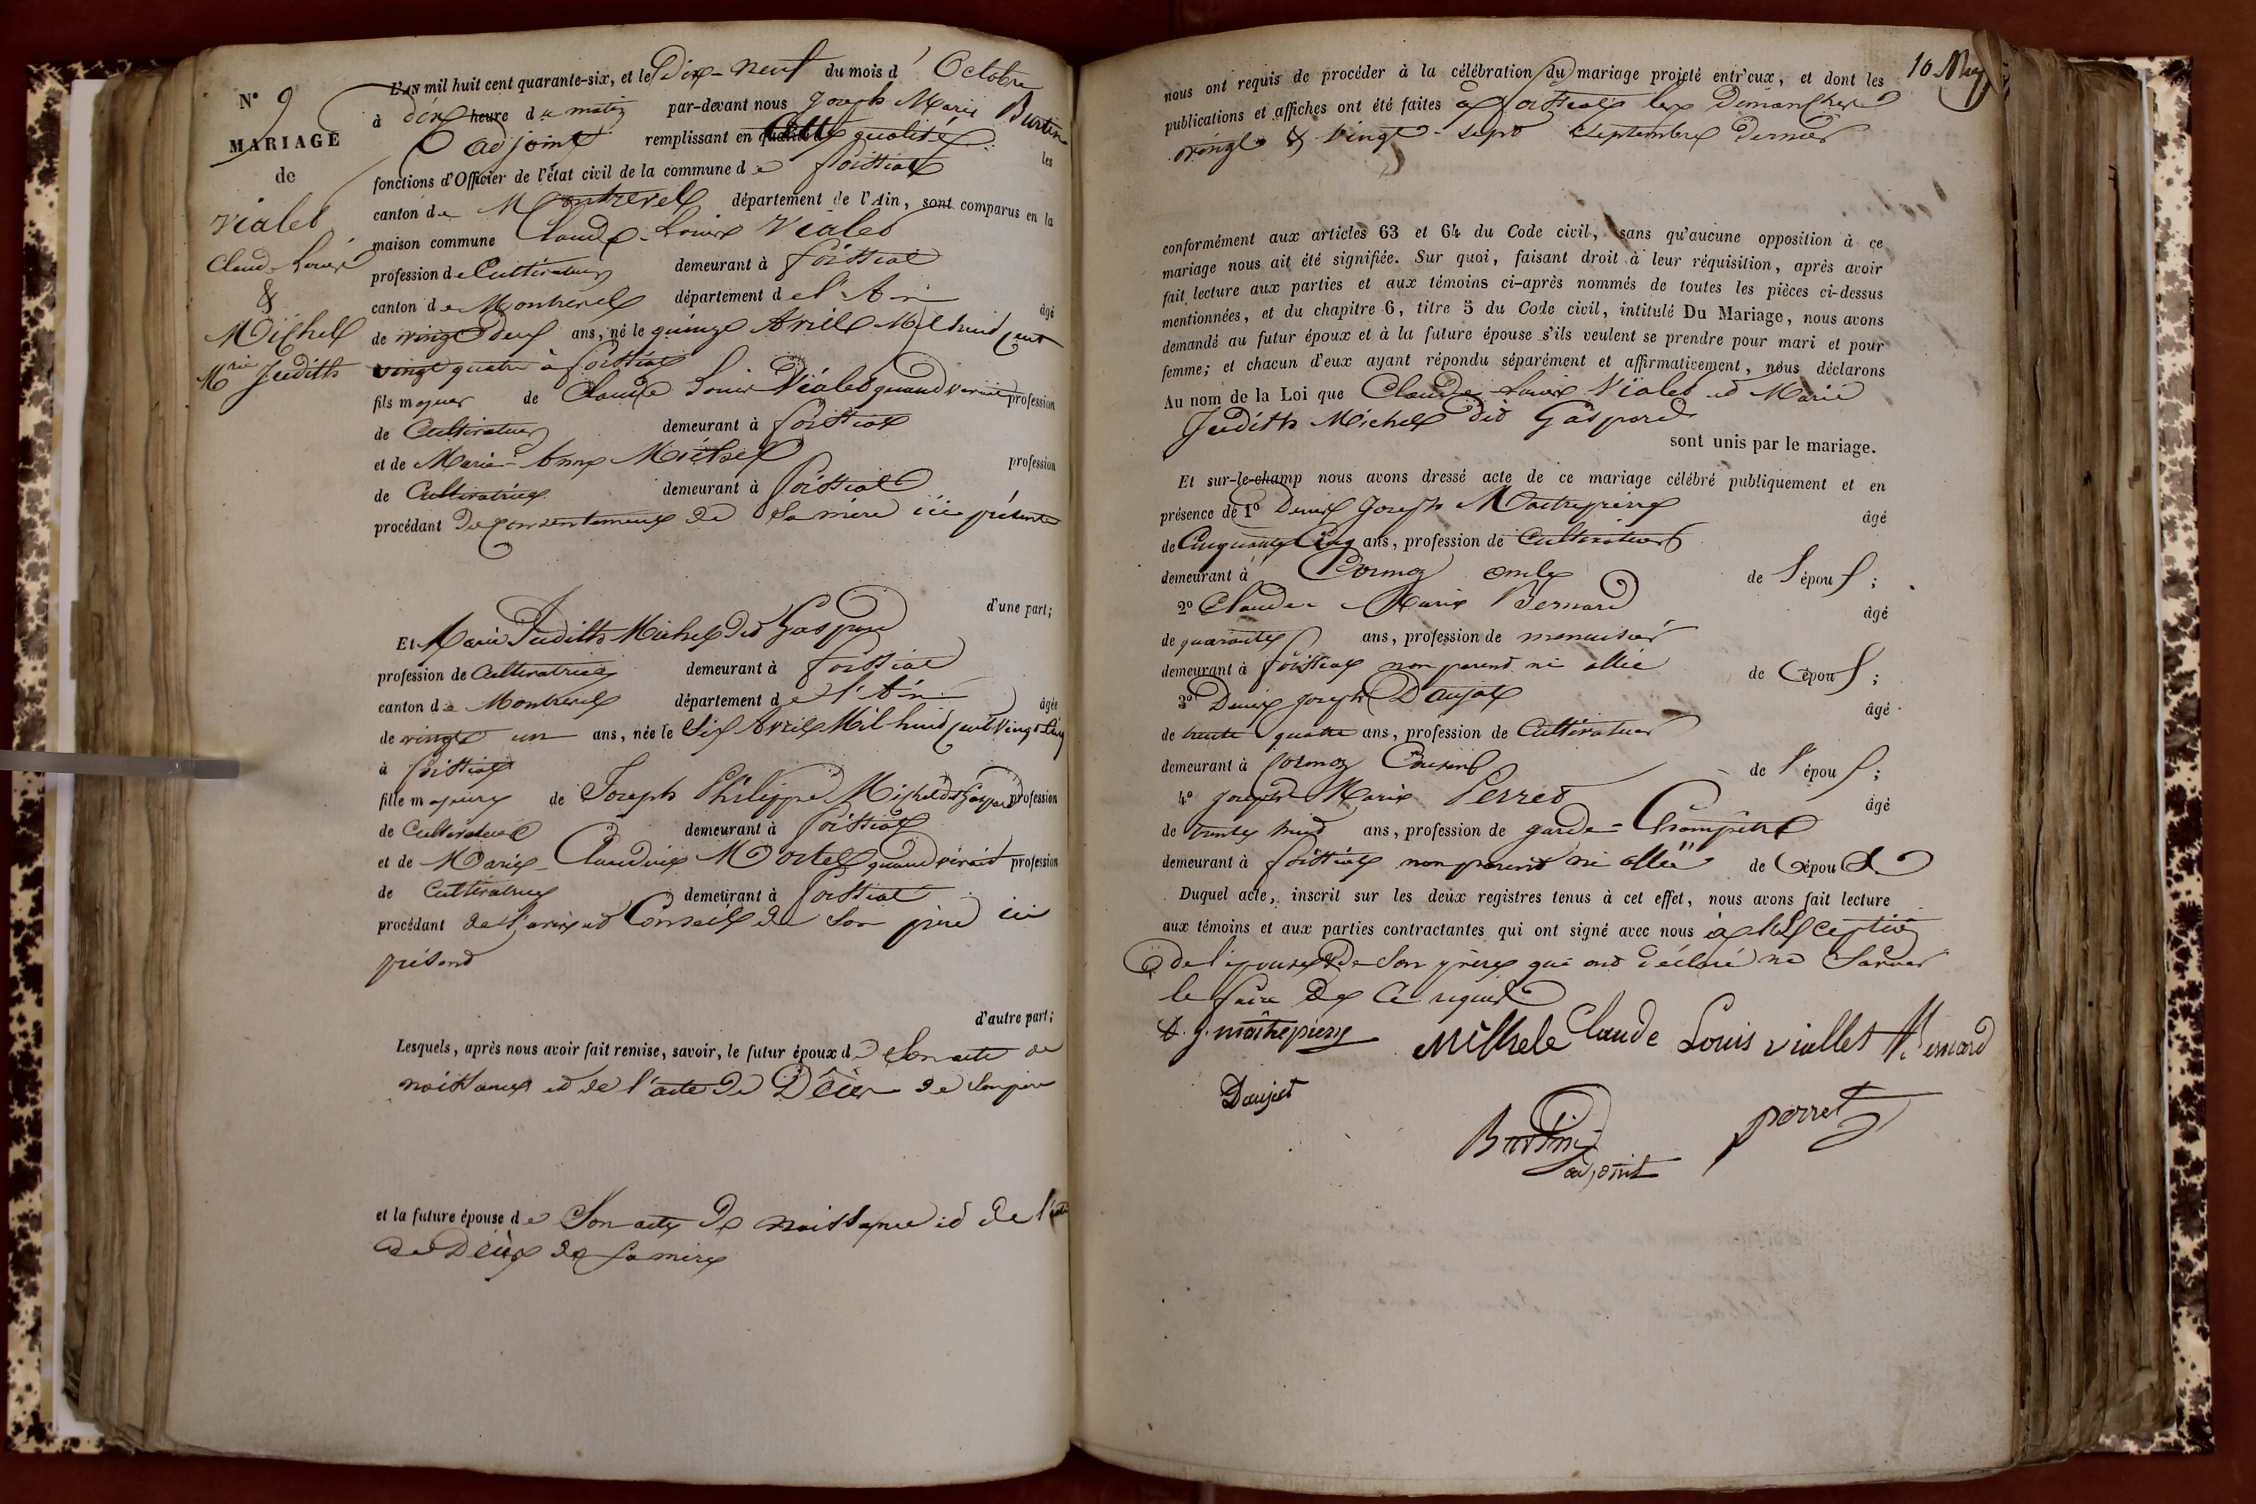 N° 9
MARIAGE
de
Vialet
Claude Louis
&
Michel
Mrie Judith
L'AN mil huit cent quarante-six, et le Dix-neuf du mois d' Octobre
à dix heure du matin par-devant nous Joseph Marie Burtin
adjoint remplissant en cette qualité les
fonctions d'Officier de l'état civil de la commune de foissiat
canton de Montrevel département de l'Ain, sont comparus en la
maison commune Claude-Louis Vialet
profession de Cultivateur demeurant à foissiat
canton de Montrevel département de l'Ain âgé
de vingt deux ans, né le quinze Avril Mil huit cent
vingt quatre à foissiat
fils majeur de Claude Louis Vialet quand vivait profession
de Cultivateur demeurant à foissiat
et de Marie-Anne Michel profession
de Cultivatrice demeurant à foissiat
procédant du consentement de sa mère ici présente
d'une part;
Et Marie Judith Michel dit Gaspard
profession de Cultivatrice demeurant à foissiat
canton de Montrevel département de l'Ain âgée
de vingt un ans, née le Six Avril Mil huit cent vingt cinq
à foissiat
fille majeure de Joseph Philippe Michel dit Gaspard profession
de Cultivateur demeurant à foissiat
et de Marie-Claudine Mortel quand vivait profession
de Cultivatrice demeurant à foissiat
procédant de l'avis et Conseil de son père ici
présent
d'autre part;
Lesquels, après nous avoir fait remise, savoir, le futur époux de Son acte de
naissance et de l'acte de Décès de son père
et la future épouse de Son acte de naissance et de l'acte
de Décès de sa mère
10 May
nous ont requis de procéder à la célébration du mariage projeté entr'eux, et dont les
publications et affiches ont été faites à foissiat les Dimanches
vingt & vingt-sept septembre dernier
conformément aux articles 63 et 64 du Code civil, sans qu'aucune opposition à ce
mariage nous ait été signifiée. Sur quoi, faisant droit à leur réquisition, après avoir
fait lecture aux parties et aux témoins ci-après nommés de toutes les pièces ci-dessus
mentionnées, et du chapitre 6, titre 5 du Code civil, intitulé Du Mariage, nous avons
demandé au futur époux et à la future épouse s'ils veulent se prendre pour mari et pour
femme; et chacun d'eux ayant répondu séparément et affirmativement, nous déclarons
Au nom de la Loi que Claude Louis Vialet et Marie
Judith Michel dit Gaspard
sont unis par le mariage.
Et sur-le-champ nous avons dressé acte de ce mariage célébré publiquement et en
présence de 1° Denis Joseph Maitrepierre âgé
de Cinquante Cinq ans, profession de Cultivateur
demeurant à Cormoz oncle de l'épou ;
2° Claude Marie Bernard âgé
de quarante ans, profession de menuisier
demeurant à foissiat non parent ni allié de l'épou ;
3° Denis Joseph Daujat âgé
de trente quatre ans, profession de Cultivateur
demeurant à Cormoz Cousin de l'épou ;
4° Joseph Marie Perret âgé
de trente huit ans, profession de garde-Champêtre
demeurant à foissiat non parent ni allié de l'épou
Duquel acte, inscrit sur les deux registres tenus à cet effet, nous avons fait lecture
aux témoins et aux parties contractantes qui ont signé avec nous à l'exception
de l'épouse de son père qui ont déclaré ne savoir
le faire de ce requis
d. j. maitrepierre Michele Claude Louis viallet Bernard
Daujat
Burtin perret
adjoint